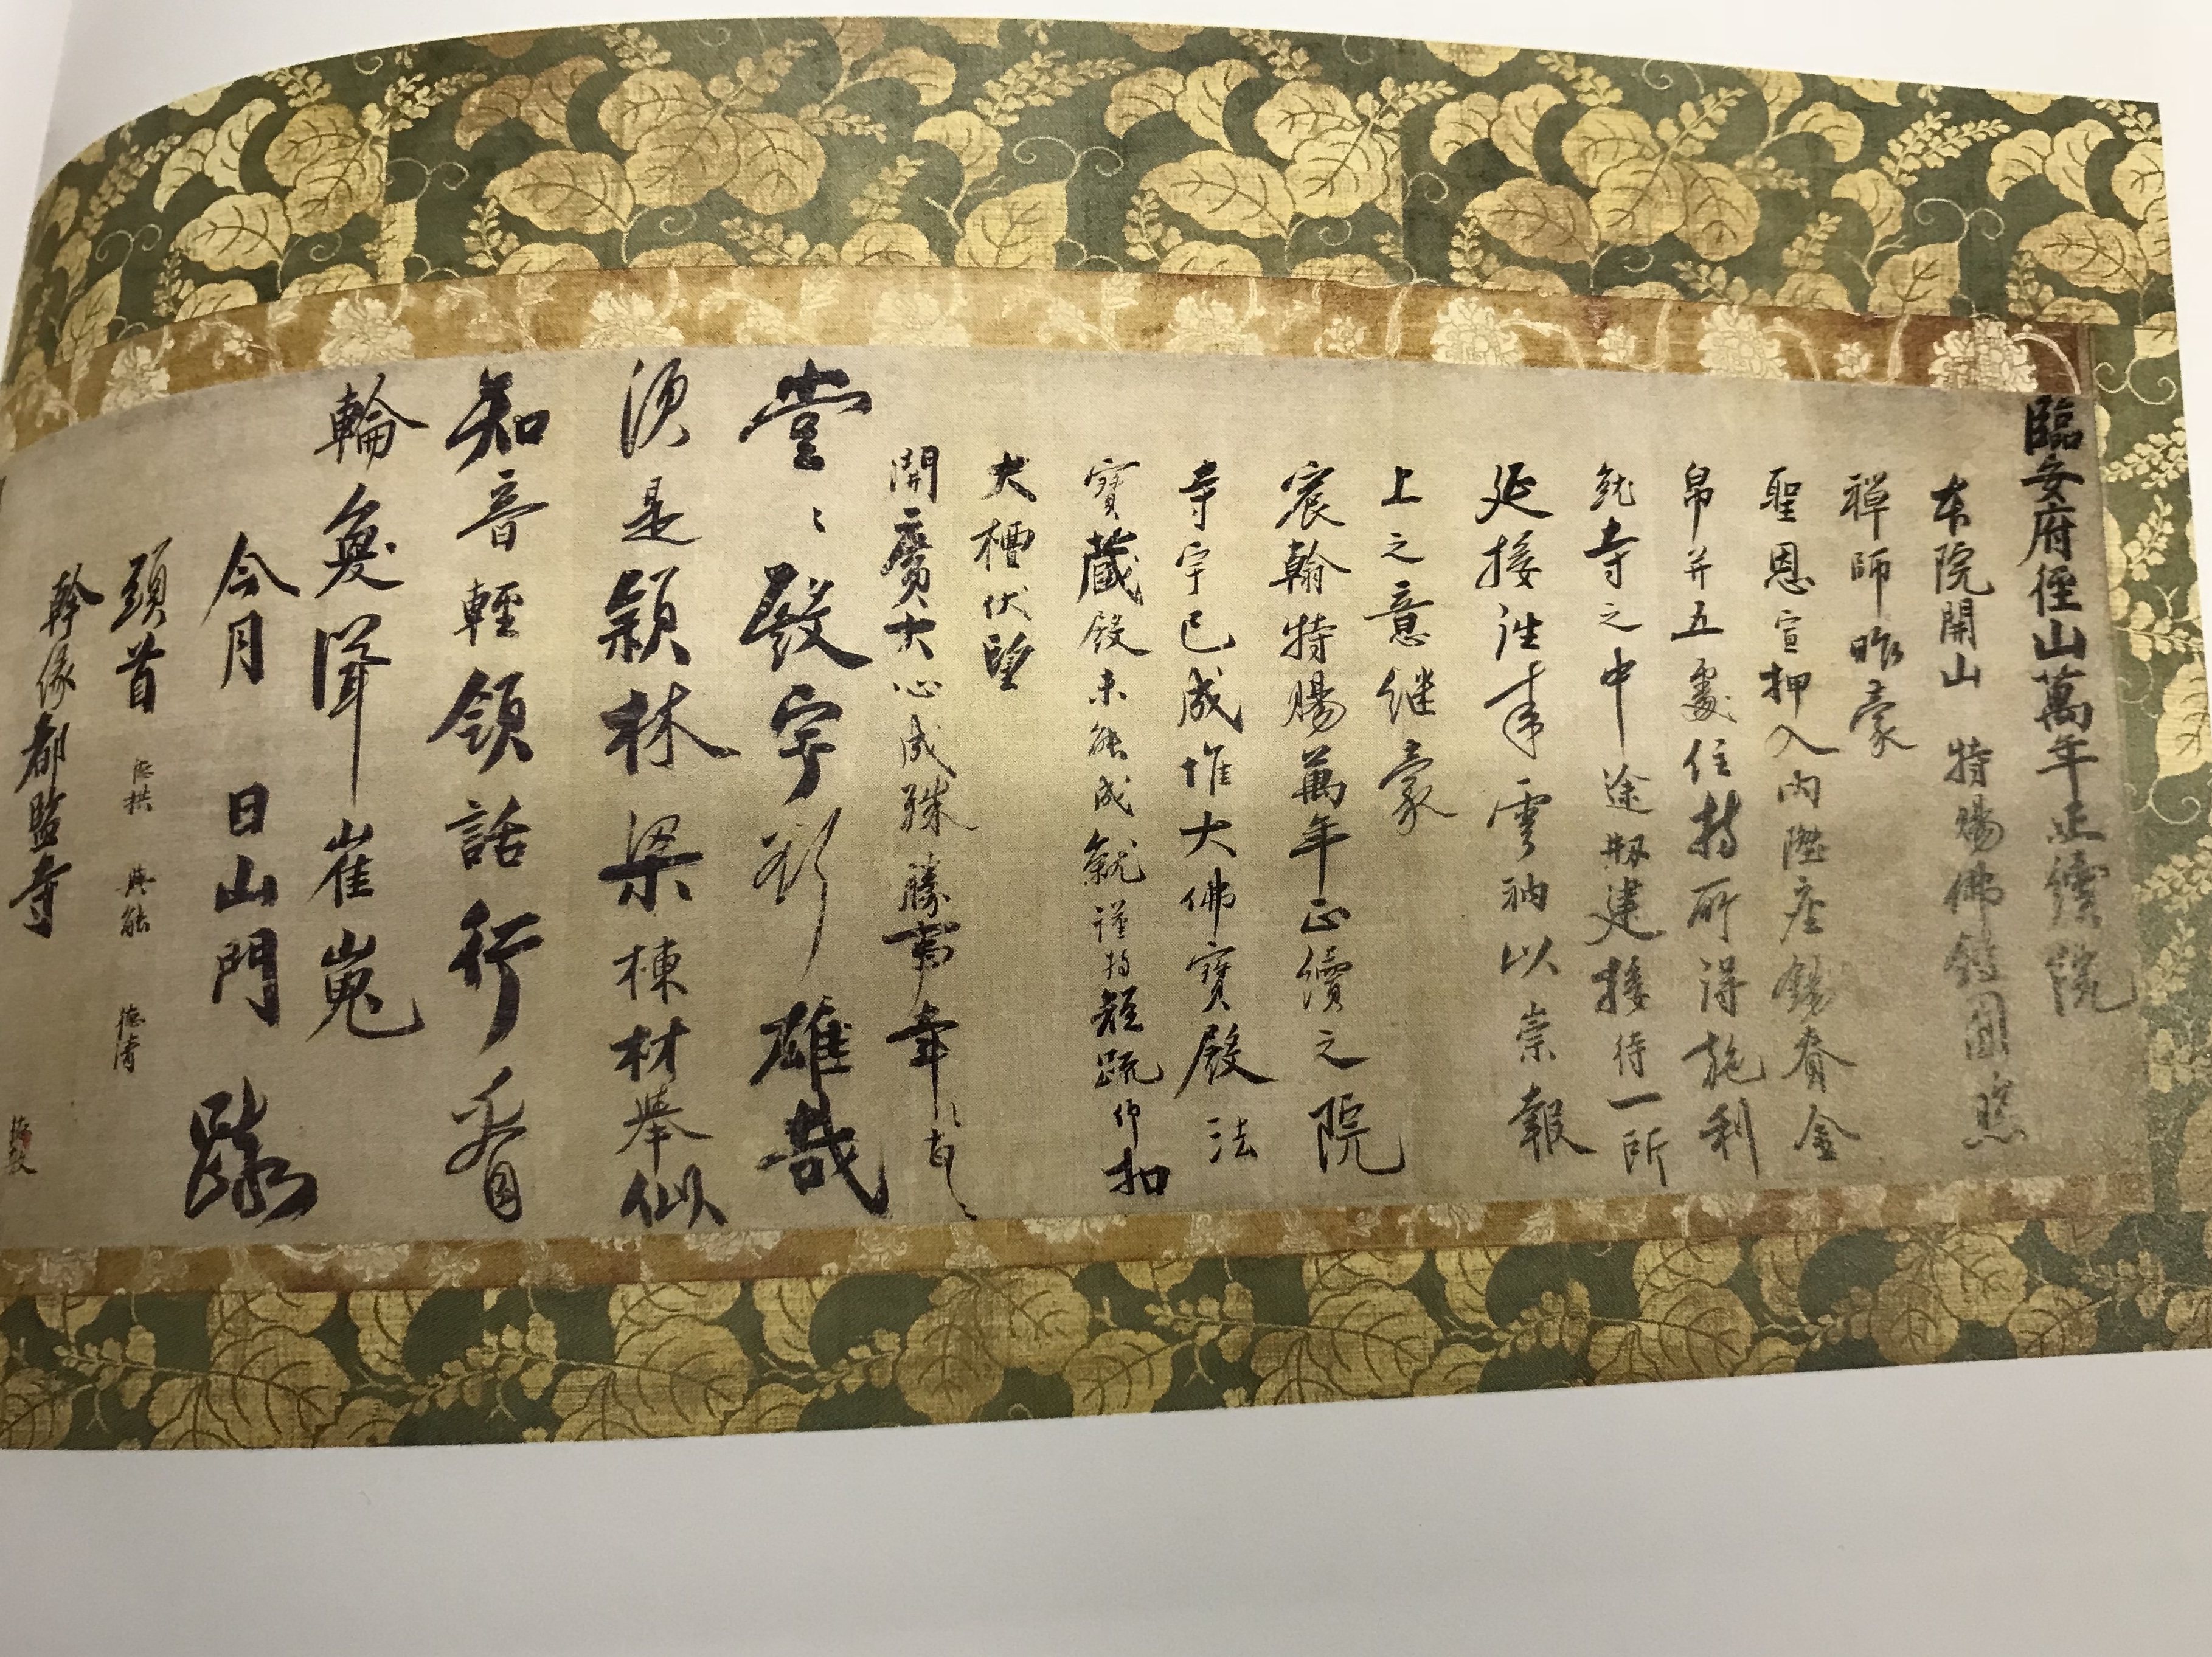 臨安府徑山萬年正續院
本院開山特賜佛鑑圓照
禪師昨蒙
聖恩宣押入內陞座錫賚金
帛并五處住持所得施利
就寺之中途剏建接待一所
延接往來雲衲以崇報
上之意继蒙
宸翰特賜萬年正續之院
寺宇已成惟大佛寶殿法
寶藏殿未能成就謹持短疏仰扣
大檀伏望
開廣大心成殊勝事幸
堂〻殿宇彩雄哉
須是穎林梁棟材舉似
知音輕領話行看
輪奐聳崔嵬
今月日山門疏
頭首 德清
幹緣都監寺